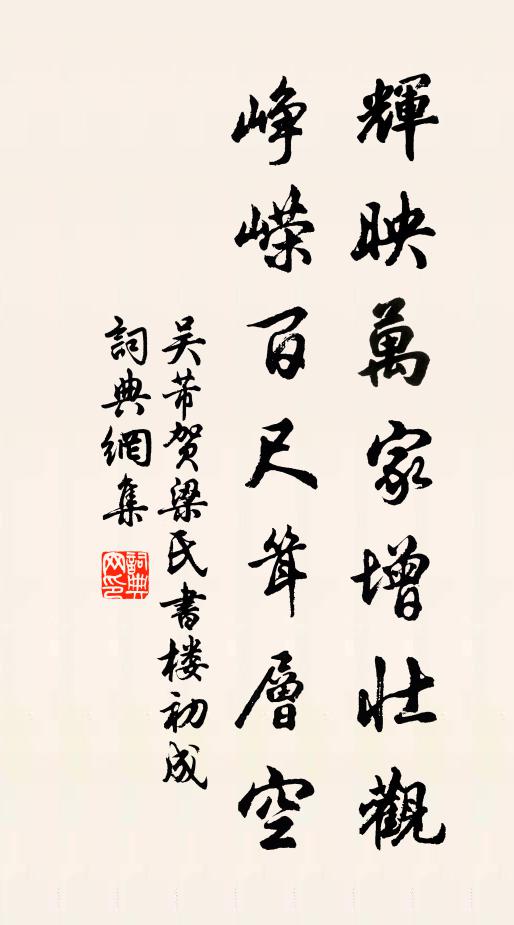 輝映萬家增壯觀
崢嶸百尺聳層空
吴芾贺梁氏書楼初成
詞典網集
詞典
网印